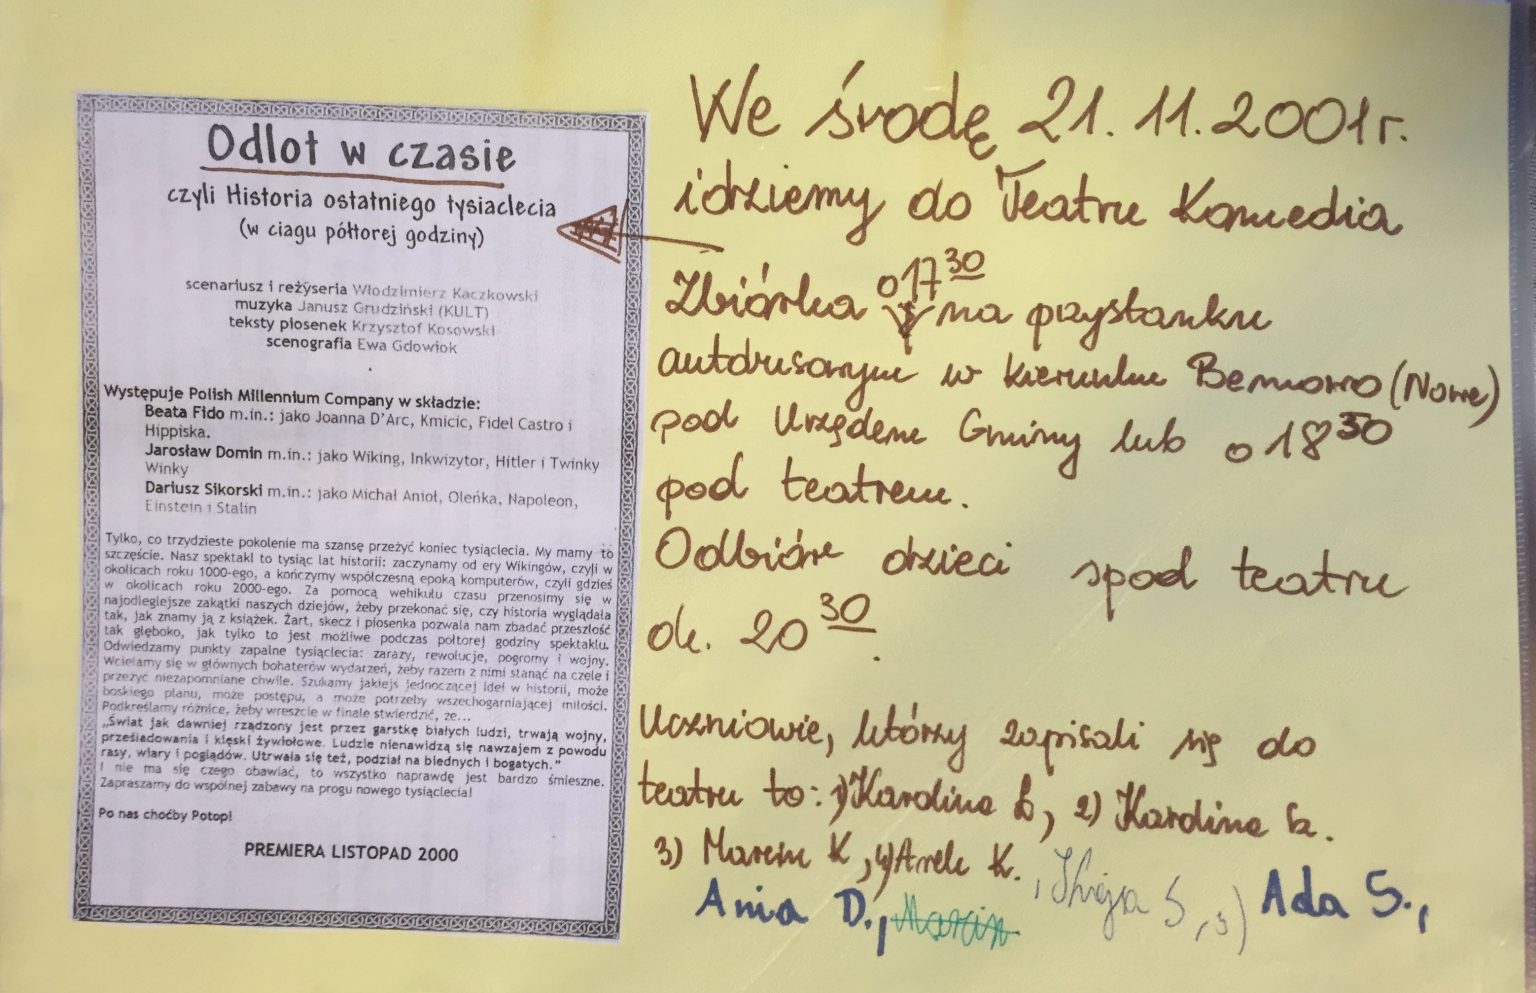 Odlot w czasie
czyli Historia ostatniego tysiaclecia
(w ciagu półtorej godziny)
scenariusz i reżyseria Włodzimierz Kaczkowski
muzyka Janusz Grudziński (KULT)
teksty piosenek Krzysztof Kosowski
scenografia Ewa Gdowiok
Występuje Polish Millennium Company w składzie:
Beata Fido m.in.: jako Joanna D'Arc, Kmicic, Fidel Castro i
Hippiska.
Jarosław Domin m.in.: jako Wiking, Inkwizytor, Hitler i Twinky
Winky
Dariusz Sikorski m.in.: jako Michał Anioł, Oleńka, Napoleon,
Einstein i Stalin
Tylko, co trzydzieste pokolenie ma szansę przeżyć koniec tysiąclecia. My mamy to
szczęście. Nasz spektakl to tysiąc lat historii: zaczynamy od ery Wikingów, czyli w
okolicach roku 1000-ego, a kończymy współczesną epoką komputerów, czyli gdzieś
w okolicach roku 2000-ego. Za pomocą wehikułu czasu przenosimy się w
najodleglejsze zakątki naszych dziejów, żeby przekonać się, czy historia wyglądała
tak, jak znamy ją z książek. Żart, skecz i piosenka pozwala nam zbadać przeszłość
tak głęboko, jak tylko to jest możliwe podczas półtorej godziny spektaklu.
Odwiedzamy punkty zapalne tysiąclecia: zarazy, rewolucje, pogromy i wojny.
Wcielamy się w głównych bohaterów wydarzeń, żeby razem z nimi stanąć na czele i
przeżyć niezapomniane chwile. Szukamy jakiejś jednoczącej idei w historii, może
boskiego planu, może postępu, a może potrzeby wszechogarniającej miłości.
Podkreślamy różnice, żeby wreszcie w finale stwierdzić, że...
„Świat jak dawniej rządzony jest przez garstkę białych ludzi, trwają wojny,
prześladowania i klęski żywiołowe. Ludzie nienawidzą się nawzajem z powodu
rasy, wiary i poglądów. Utrwala się też, podział na biednych i bogatych."
I nie ma się czego obawiać, to wszystko naprawdę jest bardzo śmieszne.
Zapraszamy do wspólnej zabawy na progu nowego tysiąclecia!
Po nas choćby Potop!
PREMIERA LISTOPAD 2000
We środę 21. 11. 2001r.
idziemy do Teatru Komedia
Zbiórka o 17 30 na przystanku
autobusowym w kierunku Bemowo (Nowe)
pod Urzędem Gminy lub o 18 30
pod teatrem.
Odbiór dzieci spod teatru
ok. 20 30.
Uczniowie, którzy zapisali się do
teatru to: 1) Karolina Ł, 2) Karolina
3) Marcin K, 4) Arek K.
, S, 5) Ada S.,
Ania D., Marcin